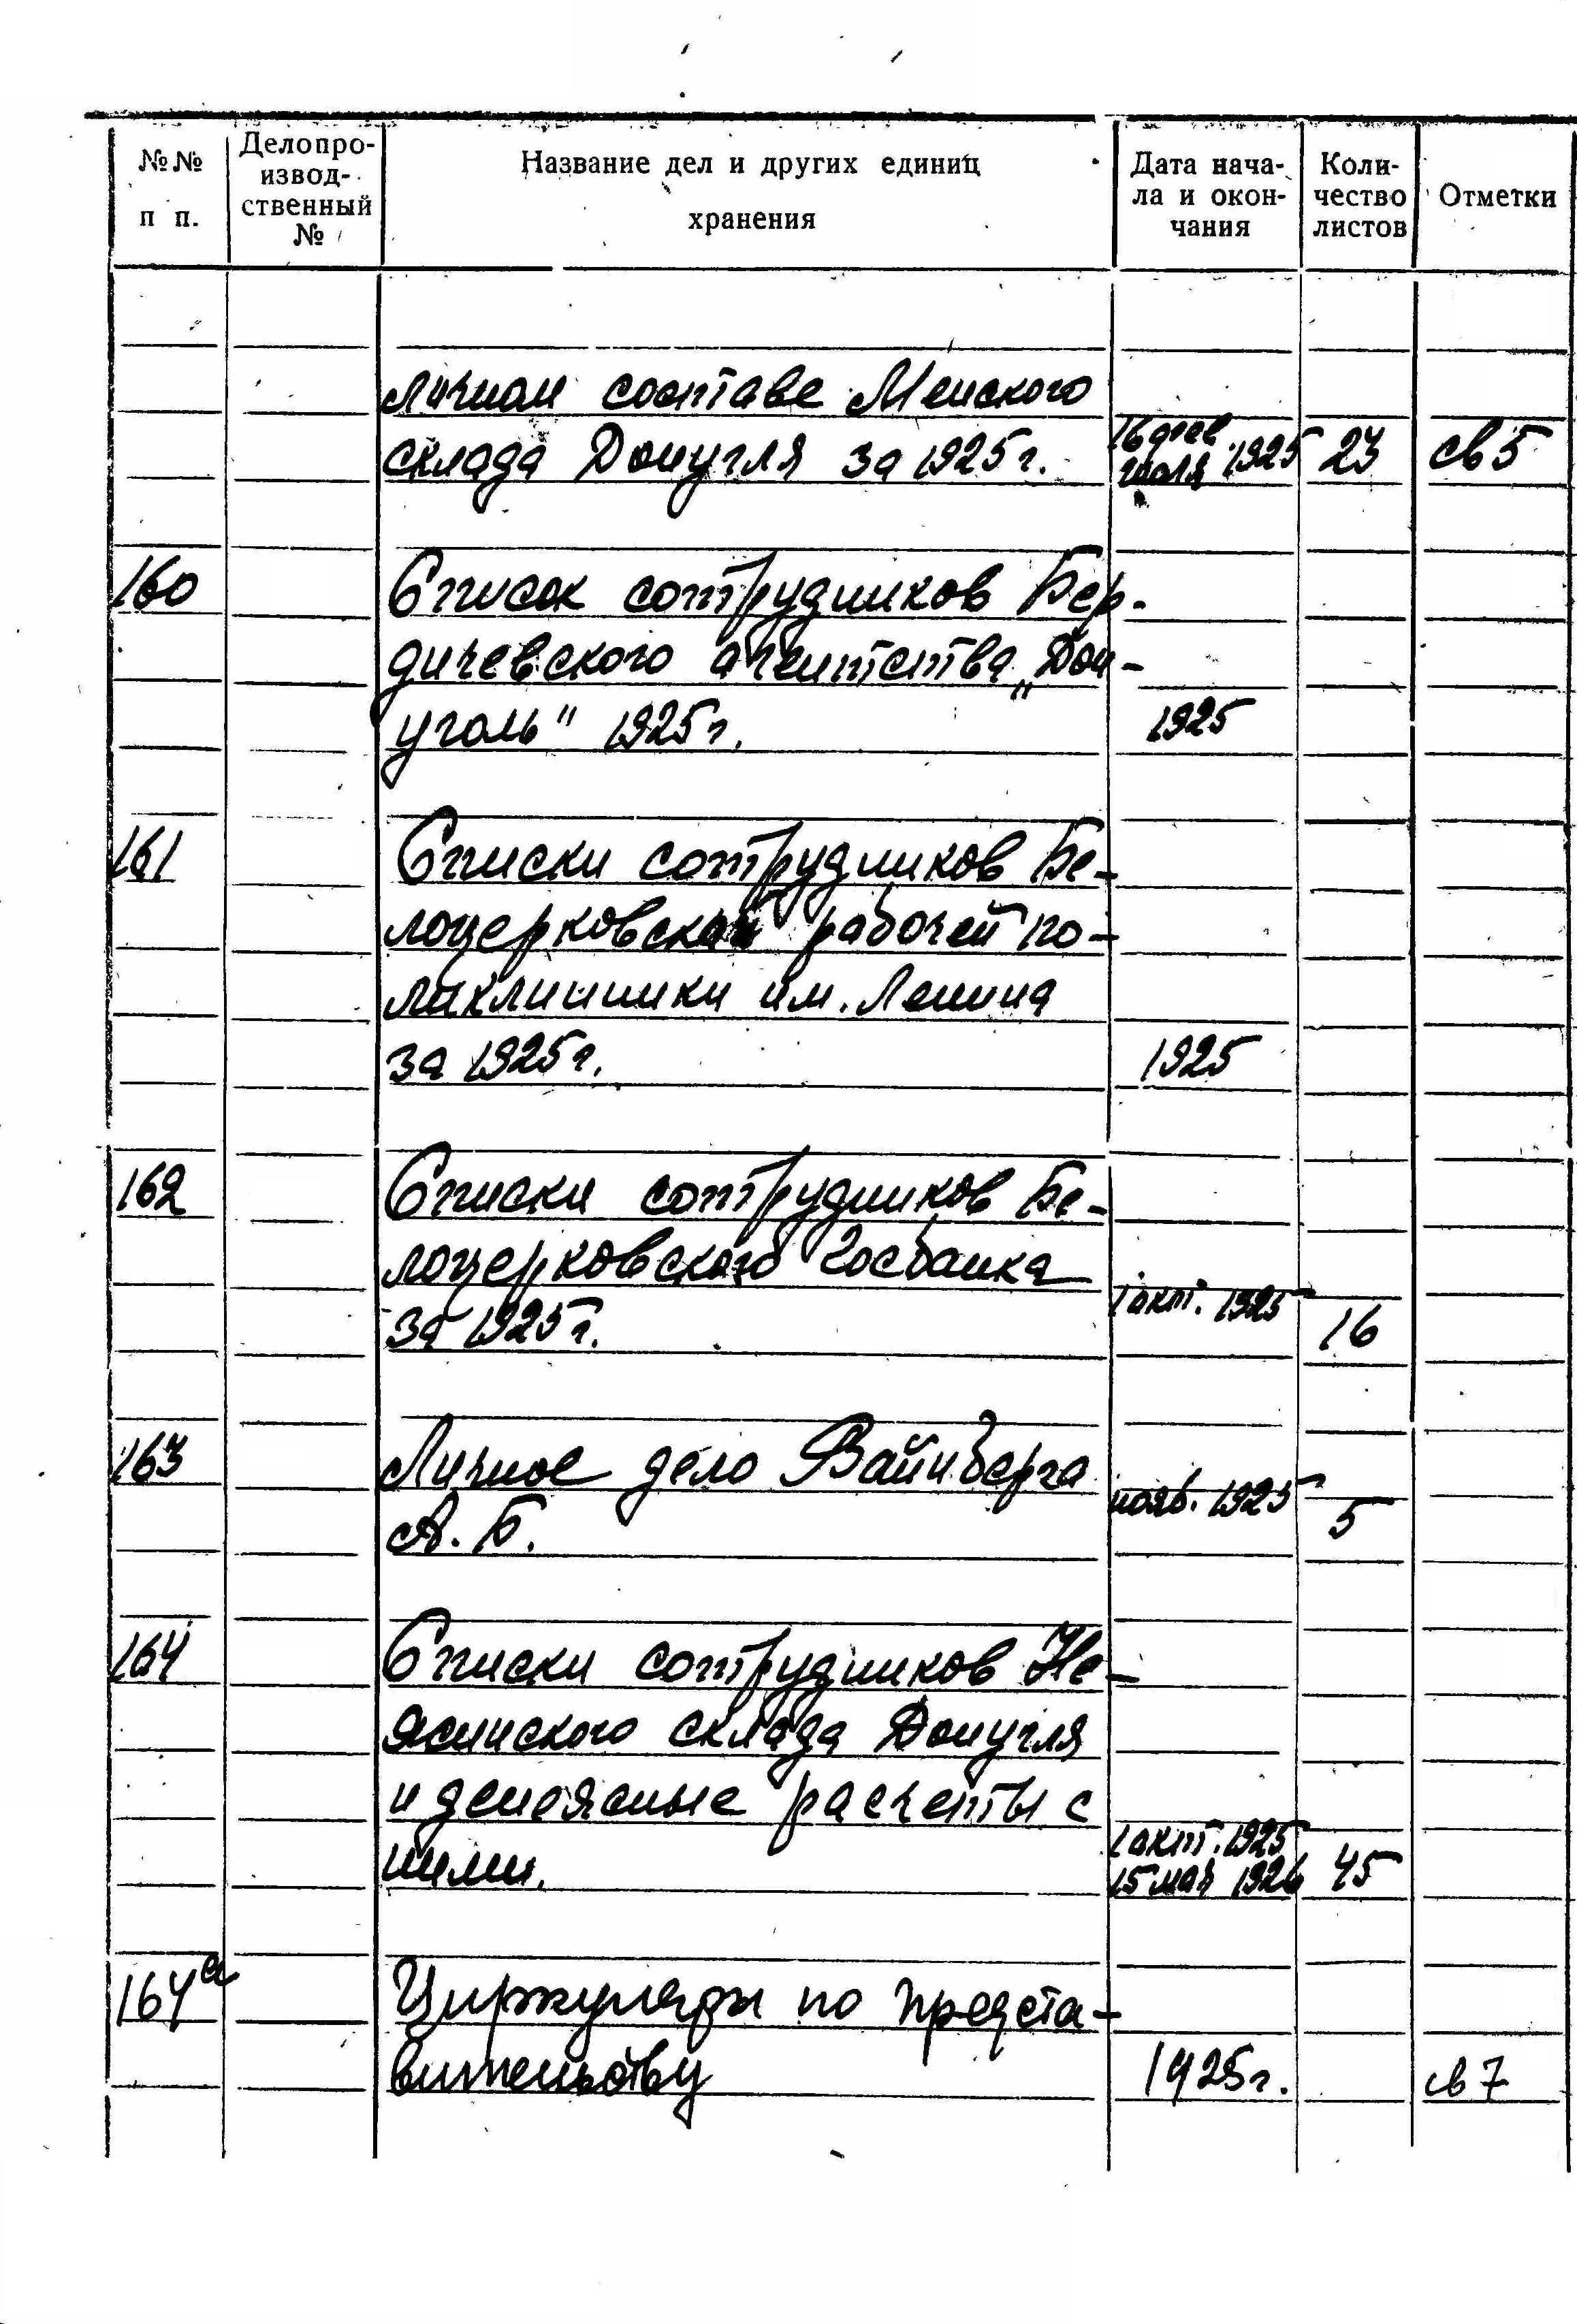 №№ п п.
Делопро-
извод-
ственный
№
Название дел и других единиц
хранения
Дата нача-
ла и окон-
чания
Коли-
чество
листов
Отметки
личном составе Менского
склада Донугля за 1925 г. июля 1925 23 св 5
160 Список сотрудников Бер-
дичевского агентства „Дон-
уголь" 1925 г. 1925
161 Списки сотрудников Бе-
лоцерковской рабочей по-
ликлиники им. Ленина
за 1925 г. 1925
162 Списки сотрудников Бе-
лоцерковского Госбанка
за 1925 г. 1 окт. 1925 16
163 Личное дело Вайнберга
А. Б. нояб. 1925 5
164 Списки сотрудников Не-
жинского склада Донугля
и денежные расчеты с
ними. 1 окт. 1925 15 мая 1926 45
164а Циркуляры по предста-
вительству 1925 г. св 7